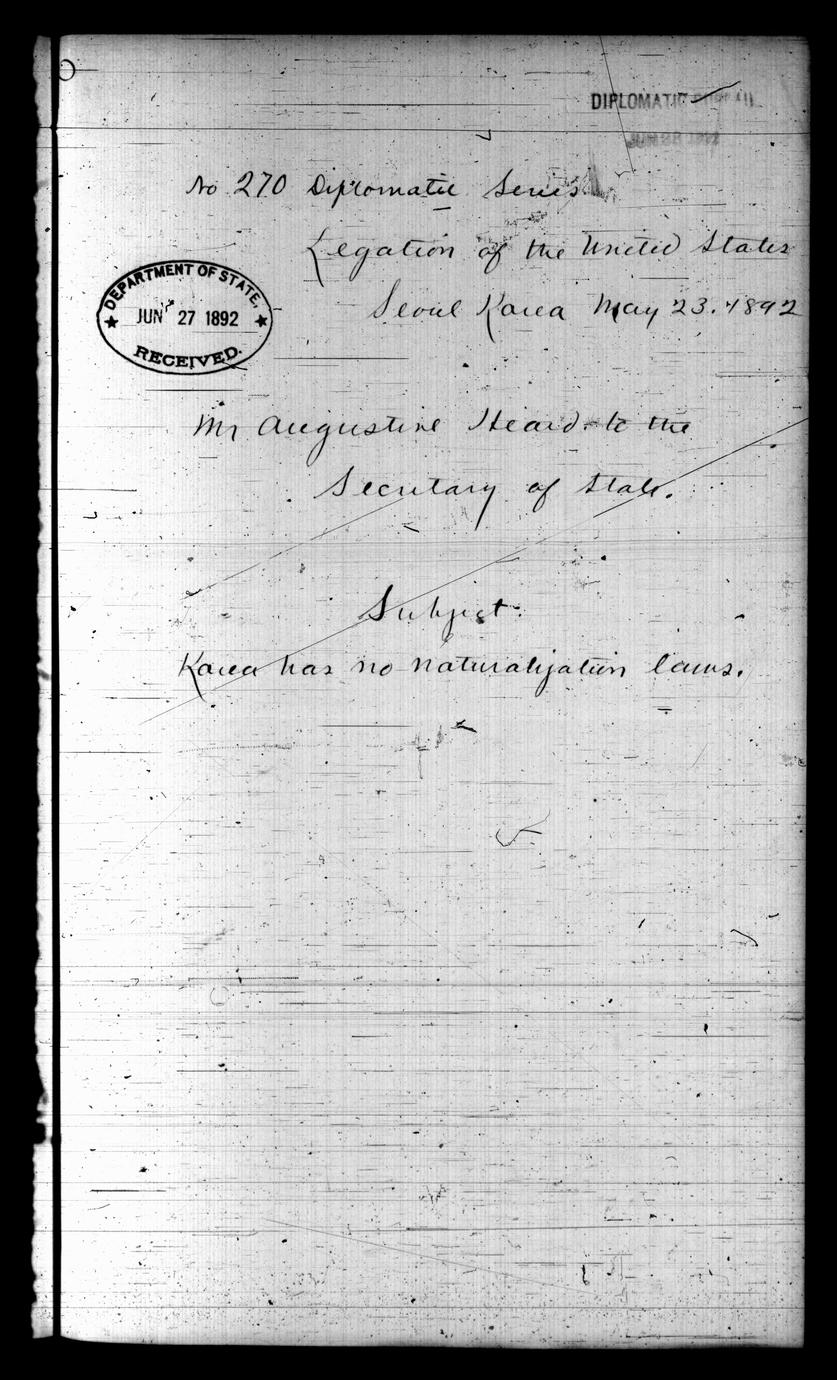 DIPLOMATIC BUREAU
JUN 28 1892
No 270 Diplomatic Series
Legation of the United States
Seoul Korea May 23. 1892
DEPARTMENT OF STATE.
JUN 27 1892
RECEIVED.
Mr Augustine Heard to the
Secretary of State.
Subject:
Korea has no naturalization laws.